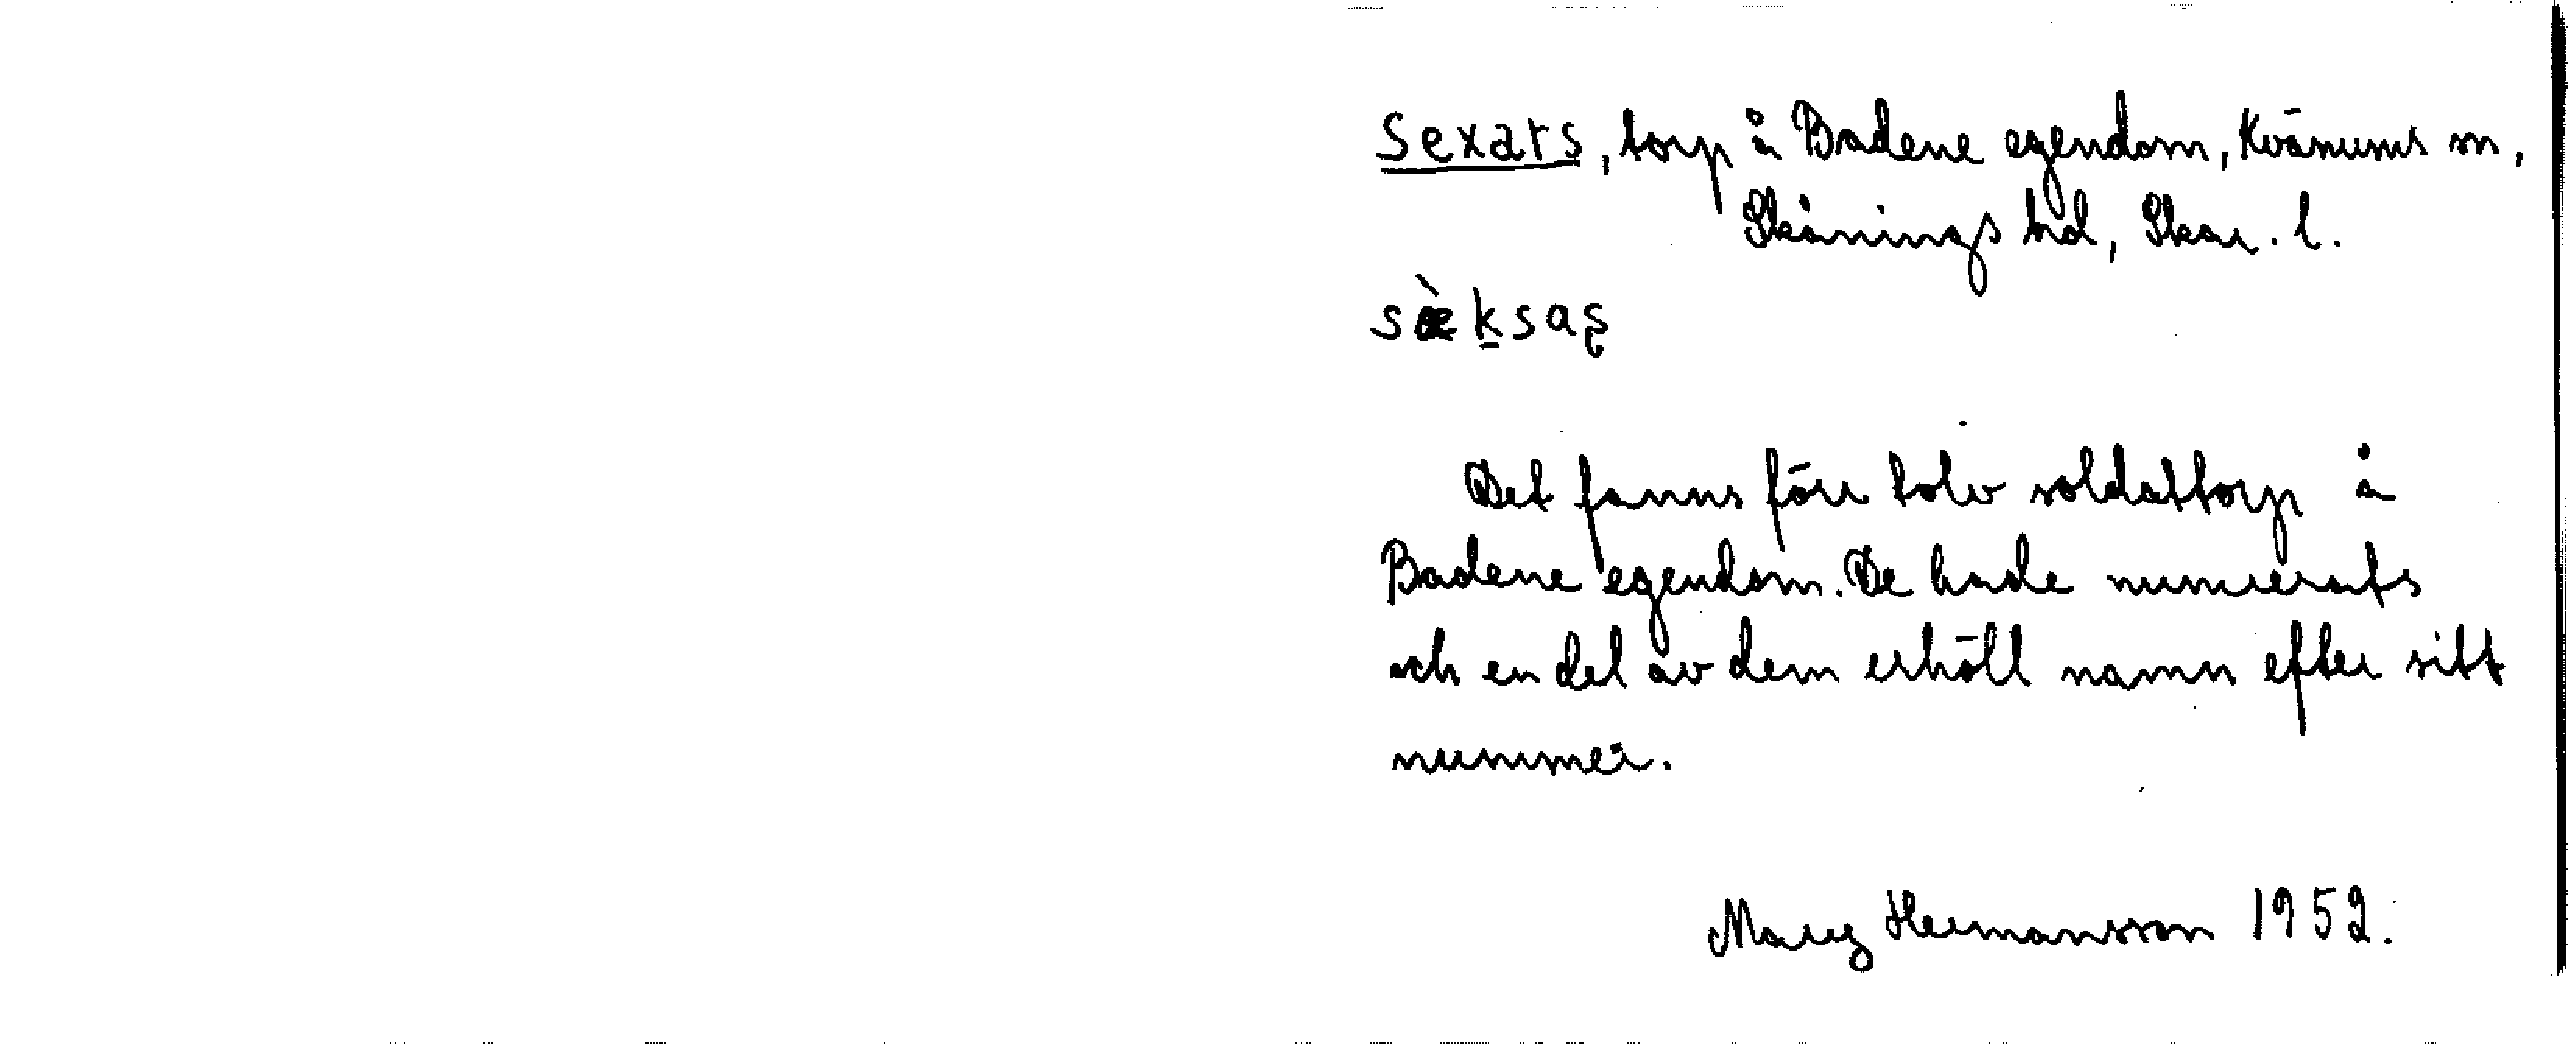 Sexars, torp å Badene egendom, Kvänums sn,
Skånings hd, Skar. l.
sæ̀k̠saş
Det fanns förr tolv soldattorp å
Badene egendom. De hade numrerats
och en del av dem erhöll namn efter sitt
nummer.
Marg Hermansson 1952.